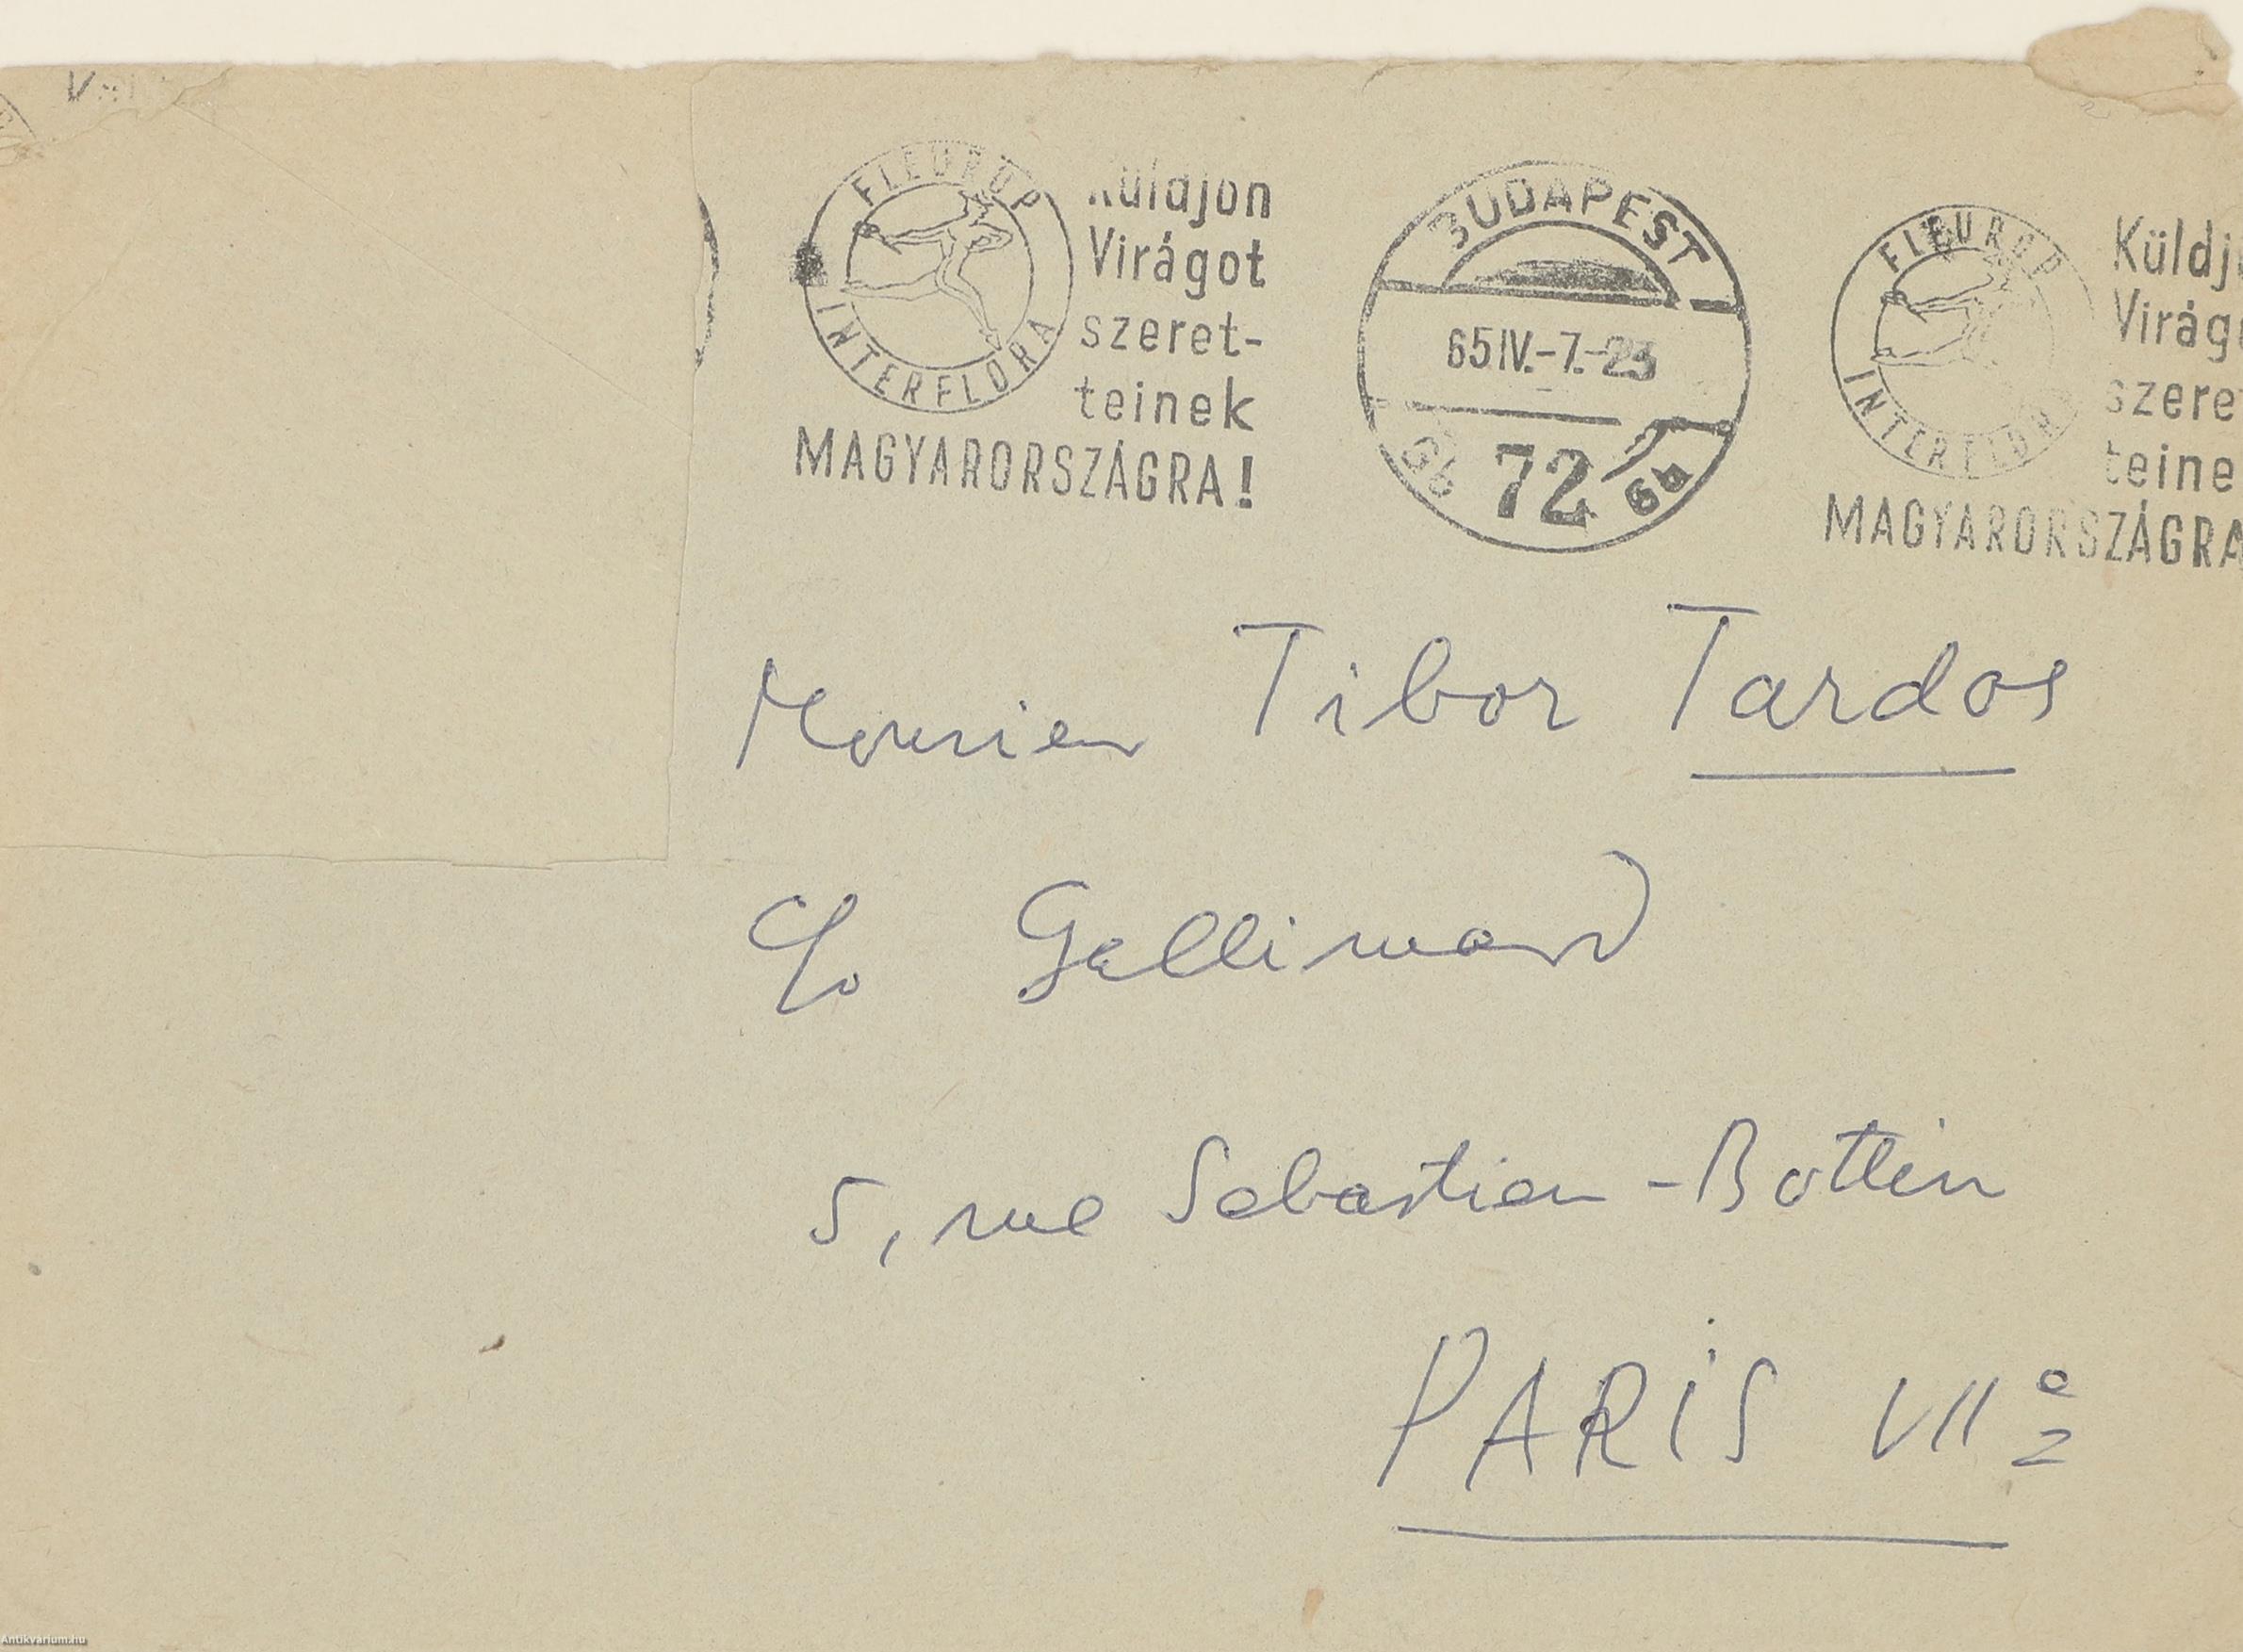 FLEUROP
INTERFLORA
Küldjön
Virágot
szeret-
teinek
MAGYARORSZÁGRA!
BUDAPEST
65 IV.-7.-23
6b 72 6b
FLEUROP
INTERFLORA
Küldj
Virág
szere
teine
MAGYARORSZÁGRA
Monsieur Tibor Tardos
c/o Gallimard
5, rue Sebastien-Bottin
PARIS VIIe
Antikvarium.hu